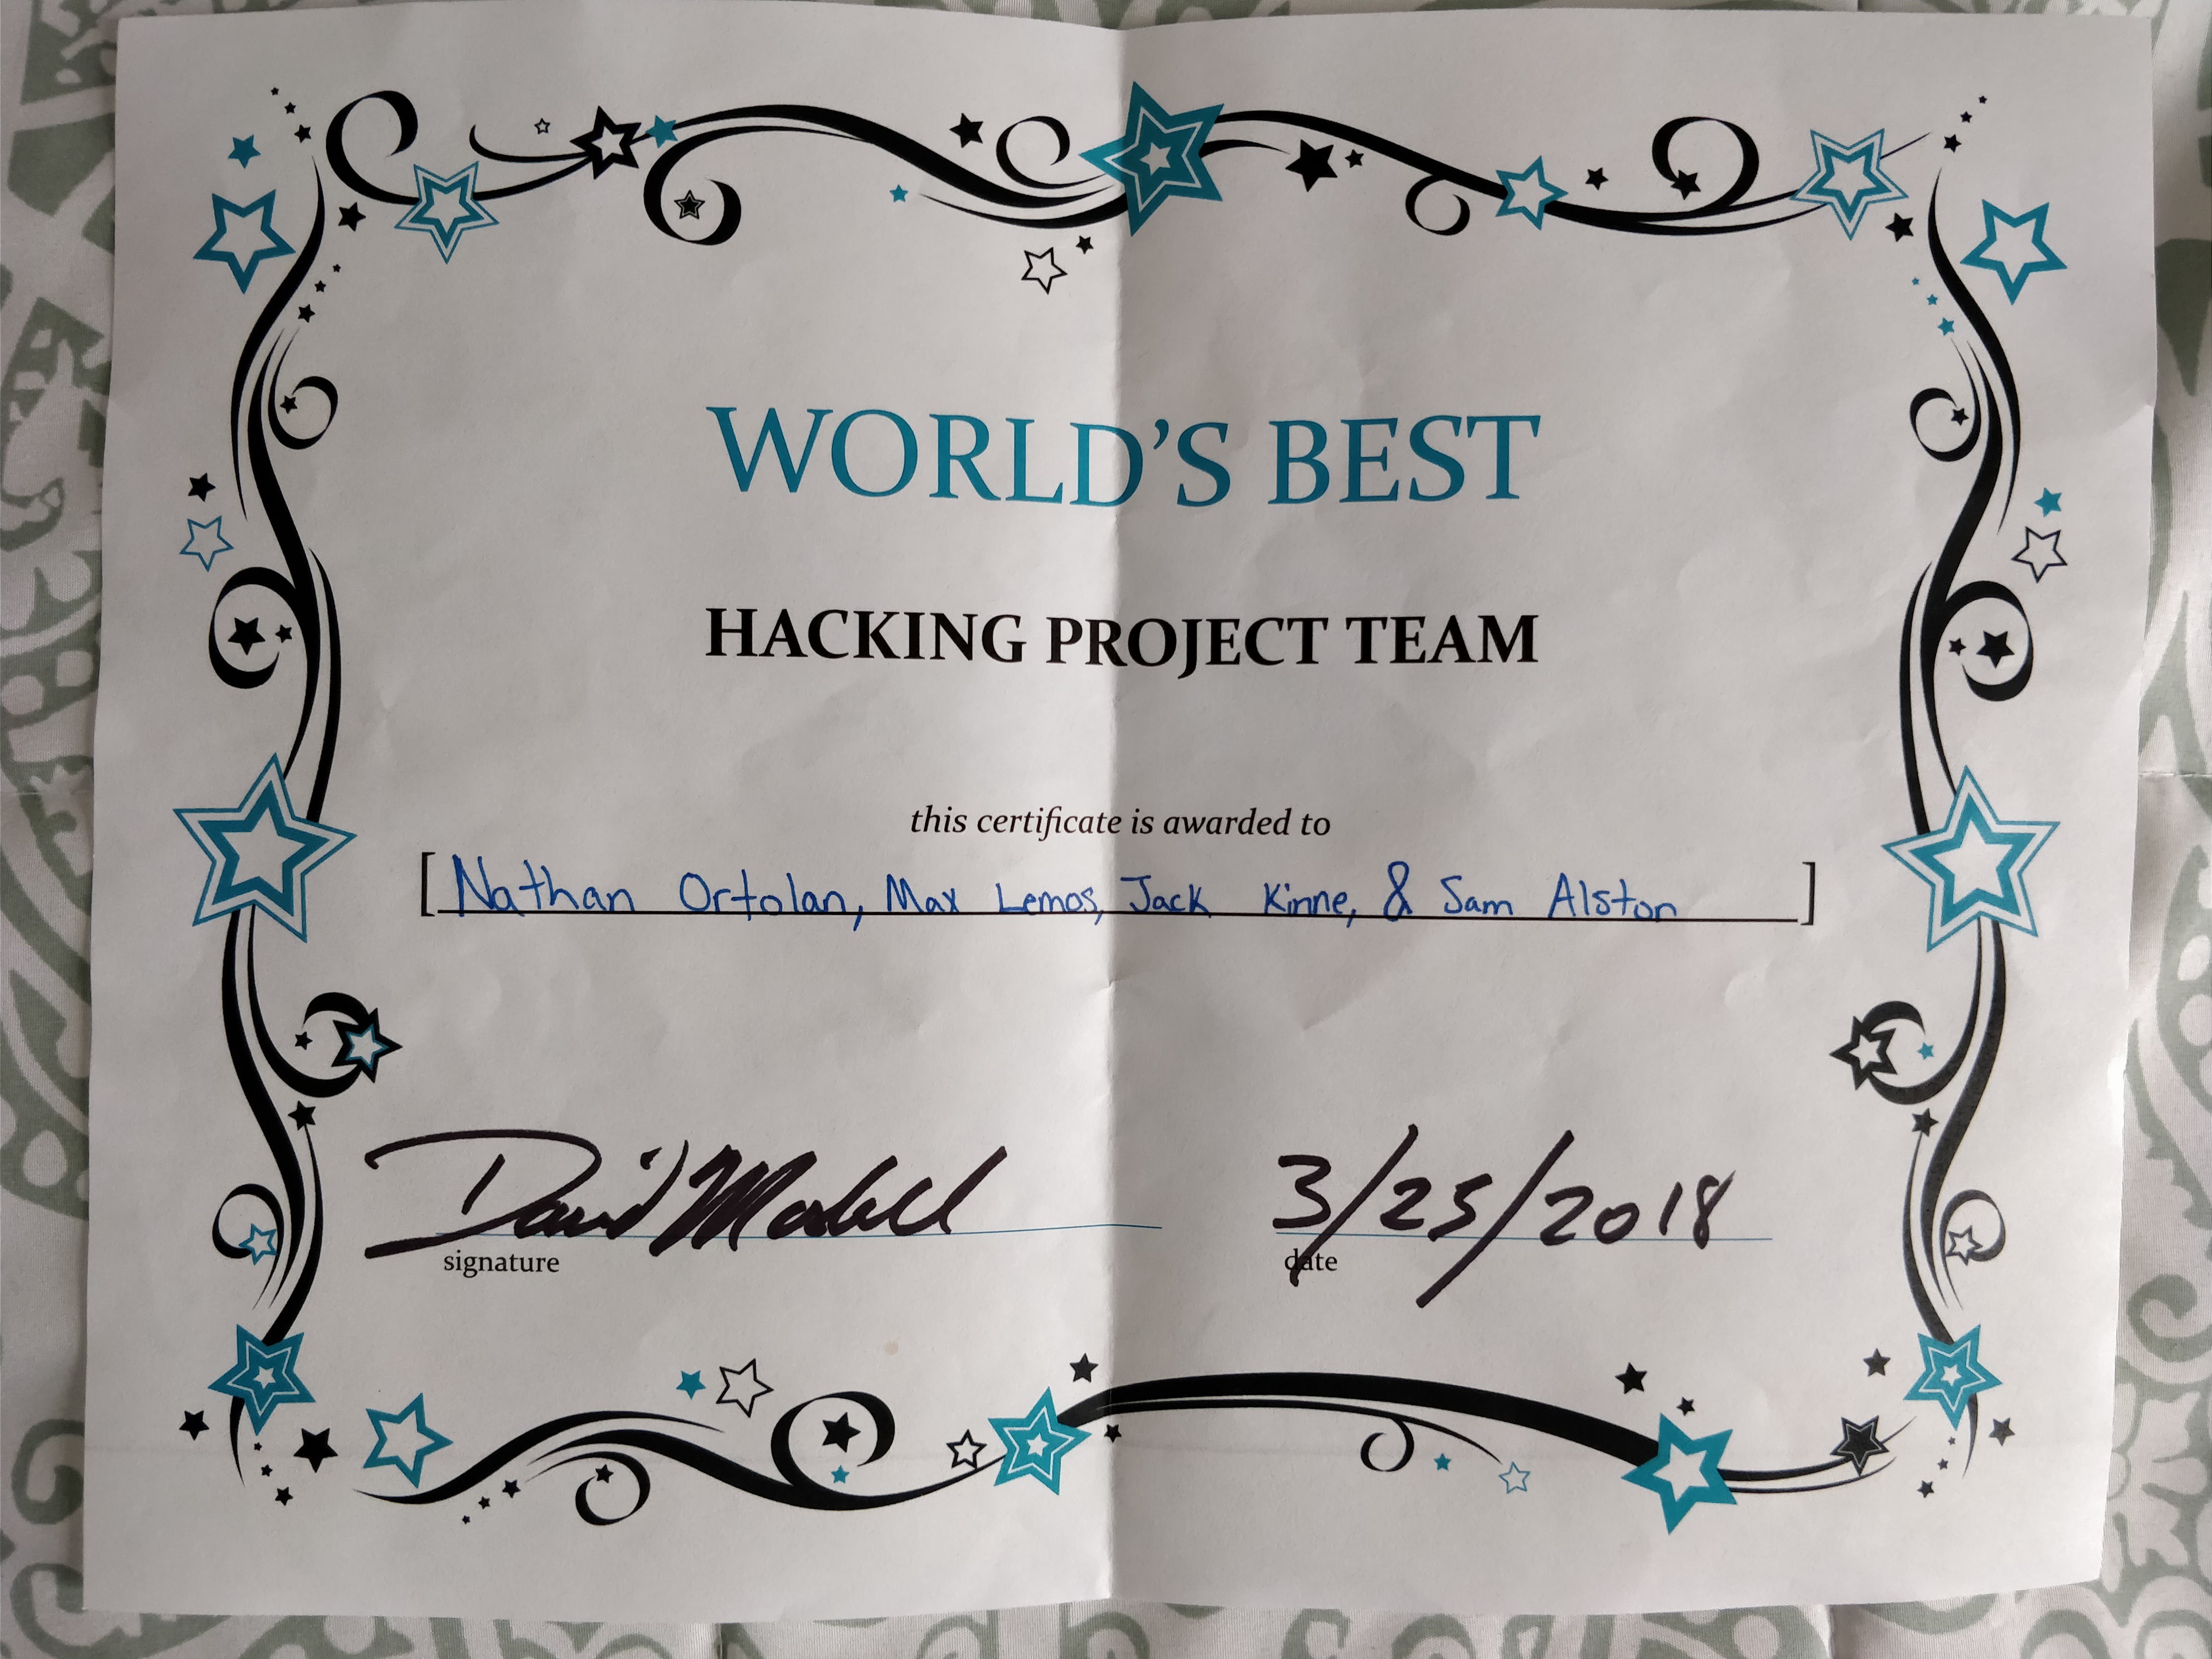 WORLD'S BEST
HACKING PROJECT TEAM
this certificate is awarded to
[Nathan Ortolan, Max Lemos, Jack Kinne, & Sam Alston]
David 3/25/2018
signature date